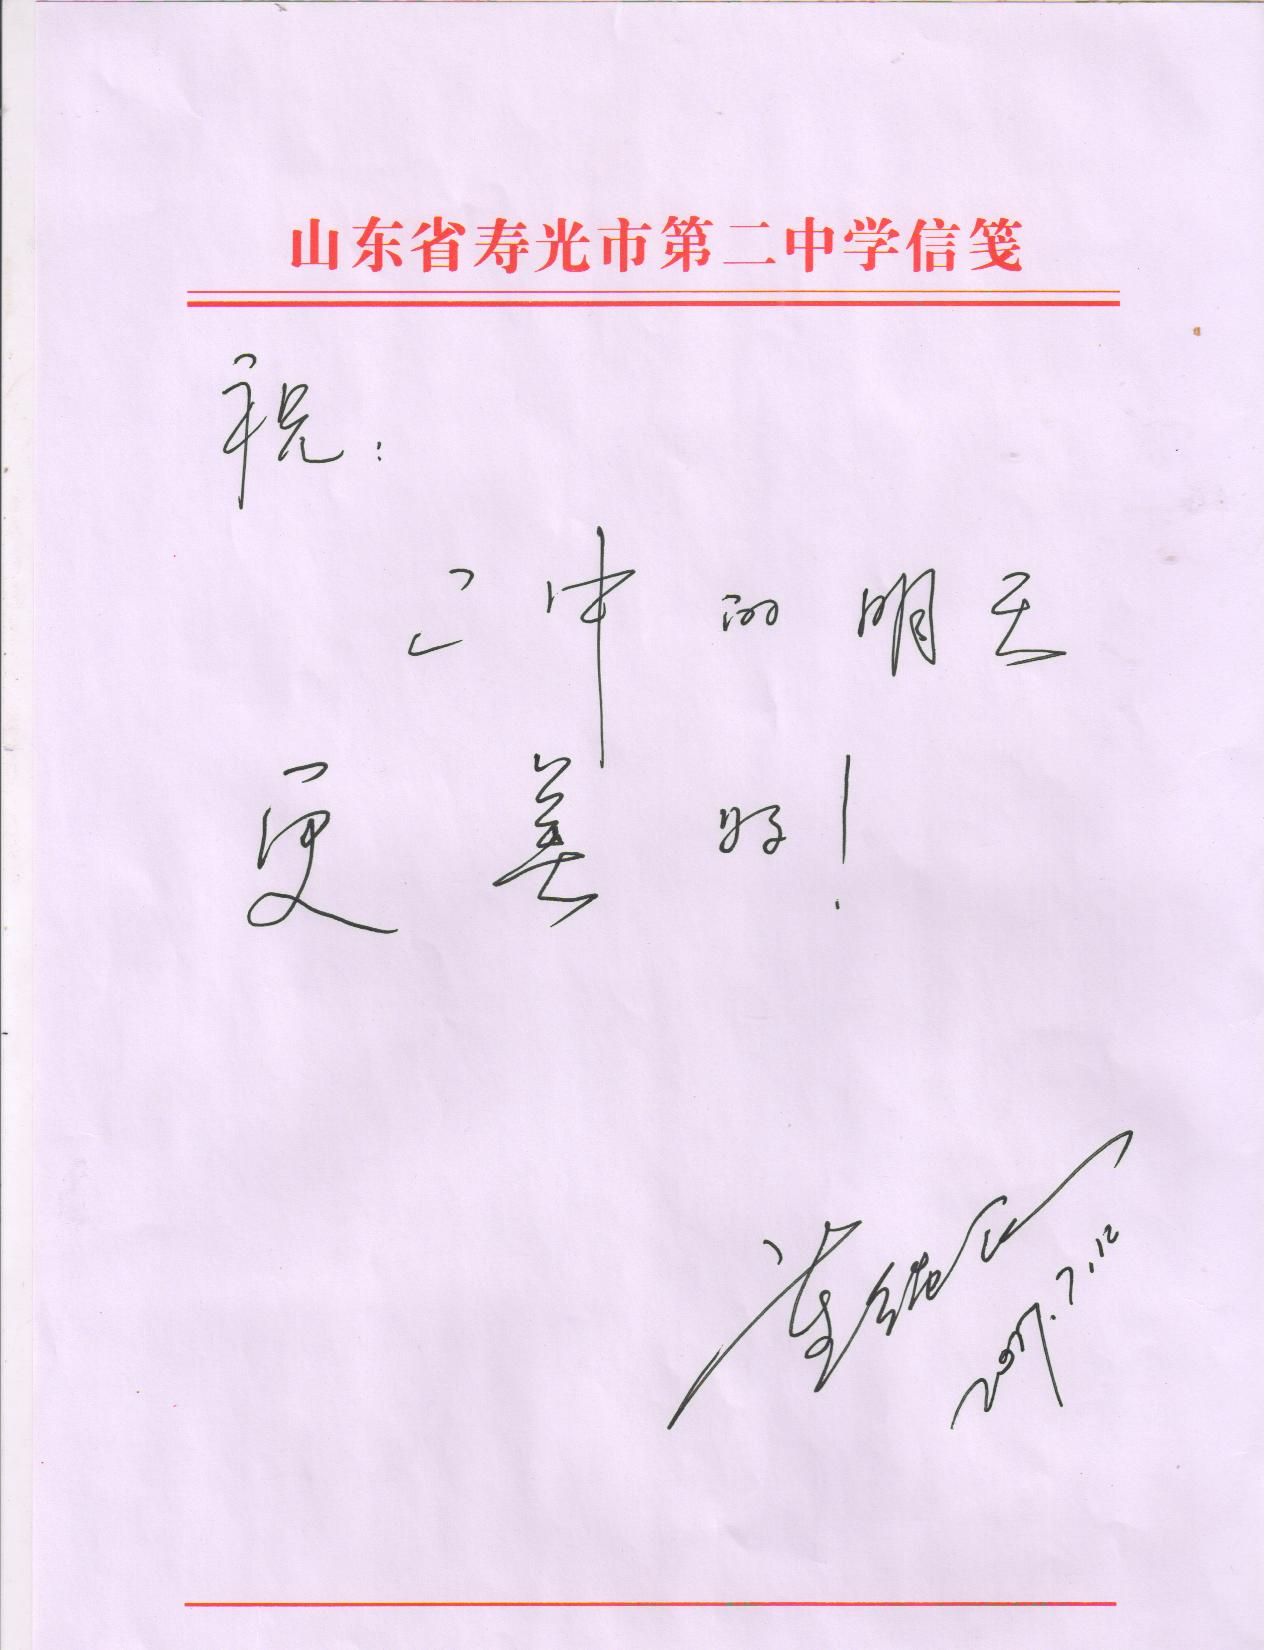 山东省寿光市第二中学信笺
祝:
二中的明天
更美好!
2007.7.12